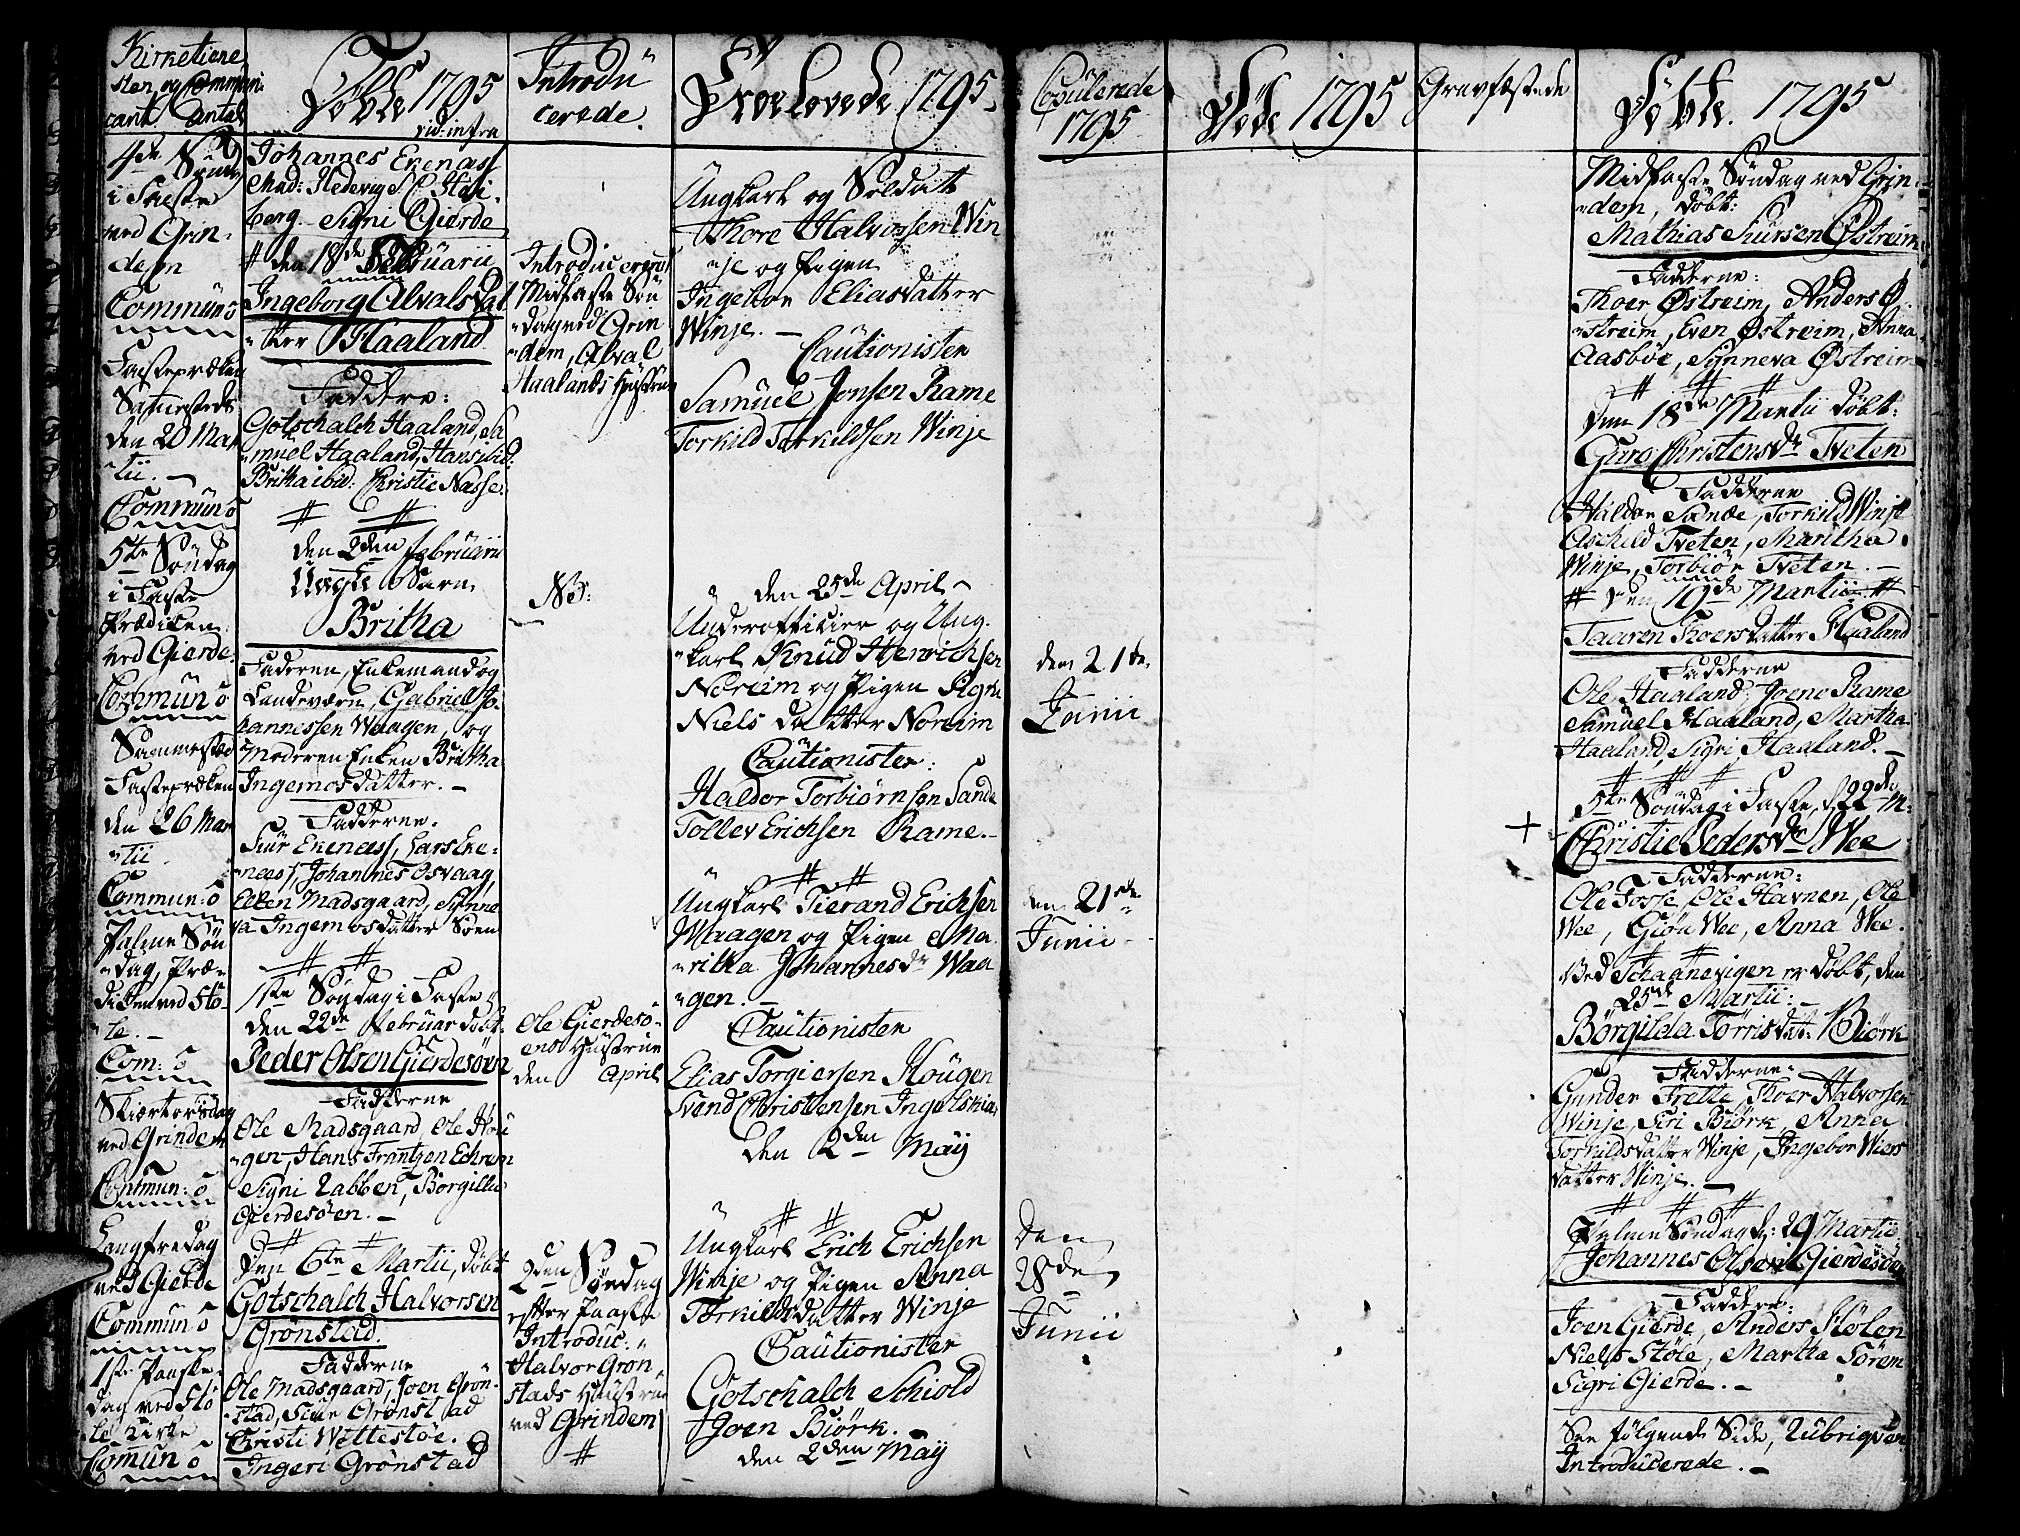 Kirketiene
sten og Communi
cant Antal
4de Sønd
i Faste
ved Grin-
dem
Commun: 0
Fasteprædken
den 20 Mar
tii.
Commun 0
5te Søndag
i Faste
Prædiken
ved Gierde
Commun 0
Sammested
Fasteprædken
den 26 Mar
tii.
Commun: 0
Palme Søn
dag, Præ-
diken ved Stø-
le.
Com: 0
Skiærtorsdag
ved Grindem
Commun: 0
Langfredag
ved Gierde
Commun 0
1ste Paaske-
dag ved Stø
le Kirke
Comun 0
Døbte 1795
vid: infra
Johannes Enenæss
Mad: Hedevig
berg Signi Gierde
# den 18de Februarii
Ingeborg Alvalsdat
ter Haaland
Faddere:
Gotschalch Haaland, Sa
muel Haaland, Hans ibid:
Britha ibid: Christie Næsse:
# #
den 2den Februarii
Uægte Barn
Britha
Faderen, Enkemand og
Landeværn, Gabriel Jo
hannessen Waagen, og
Moderen Enken Britha
Ingemosdatter.
Fadderne.
Siur Enenæss, Lars Ene-
næss, Johannes Osvaag,
Ellen Madsgaard, Synne
va Ingemosdatter Søen
# #
1ste Søndag i Faste
den 22de Februar døbt
Peder Olsen Gierdesøen
Fadderne
Ole Madsgaard, Ole Hou
gen, Hans Frantzen Echrem
Signi Labben, Børgilla
Gierdesøen.
# #
Den 6te Martii, døbt
Gotschalch Halvorsen
Grønstad.
Fadderne
Ole Madsgaard, Joen Grøn-
stad, Siur Grønstad
Christi Wettestøe.
Ingeri Grønstad
Introdu
cerede.
Introduceret
Midfaste Søn
dag ved Grin
dem, Alval
Haalands Hustrue
NB:
Ole Gierdesø-
ens Hustrue
den April
2den Søndag
efter Paaske
Introduc:
Halvor Grøn
stads Hustrue
ved Grindem
#
Trolovede 1795
Ungkarl og Soldat
Thore Halvorsen Win
je og Pigen
Ingebor Eliasdatter
Winje.
Cautionister
Samuel Jonsen Rame
Torkild Torkildsen Winje
den 25de April
Underofficier og Ung-
karl Knud Henrichsen
Noreim og Pigen Sigri
Niels datter Noreim
Cautionister:
Haldor Torbiørnsen Sande
Tollev Erichsen Rame.
# #
Ungkarl Tierand Erichsen
Waagen og Pigen Ma-
ritha Johannesdr Waa
gen.
Cautionister
Elias Torgiersen Hougen
Svend Christensen
den 2den May
# #
Ungkarl Erich Erichsen
Winje og Pigen Anna
Torkildsdatter Winje
Cautionister
Gotschalch Schiold
Joen Biørk.
den 2den May
Copulerede
1795
den 21de
Junii
den 21de
Junii
den
28de
Junii
Døde 1795
Gravfæstede
Døbte. 1795
Midfaste Søndag ved Grin
dem, døbt:
Mathias Siursen Østreim
Fadderne:
Thoer Østreim, Anders Ø
streim, Even Østreim, Anna
Aasbøe, Synneva Østreim
# # #
den 18de Martii døbt:
Guro Christensdr Tveten
Fadderne
Haldor Sande, Torkild Winje
Aschild Tveten, Maritha
Winje, Torbiør Tveten.
# den 19de Martii #
Taaren Thoersdatter Haaland
Fadderne
Ole Haaland, Joene Rame
Samuel Haaland, Martha
Haaland, Sigri Haaland.
# # #
5te Søndag i Faste, d. 22de M.
+ Christie Pedersdr Wee
Fadderne:
Ole Fosse, Ole Havnen, Ole
Wee, Giøn Wee, Anna Wee.
# #
Ved Schaanevigen er døbt, den
25de Martii:
Børgilda Tørrisdat: Biørk
Fadderne:
Gunder Trette, Thoer Halvorsen
Winje, Siri Biørk, Anna
Torkildsdatter Winje, Ingebor Wiers
datter Winje.
# # #
Palme Søndag d: 29 Martii
Johannes Olsen Gierdesøen
Faddere:
Joen Gierde, Anders Stølen
Niels Støle, Martha Sørem
Sigri Gierde.
See følgende Side, Rubriqven
Introducerede.